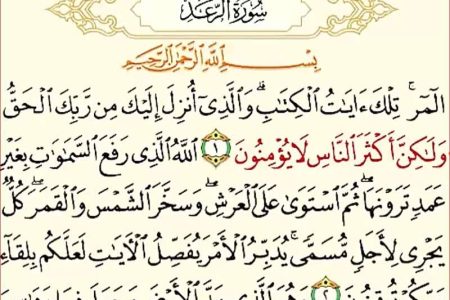 سُورَةُ الرَّعْدِ
بِسْمِ اللَّهِ الرَّحْمَٰنِ الرَّحِيمِ
الٓمٓرۚ تِلْكَ ءَايَٰتُ ٱلْكِتَٰبِۗ وَٱلَّذِىٓ أُنزِلَ إِلَيْكَ مِن رَّبِّكَ ٱلْحَقُّ
وَلَٰكِنَّ أَكْثَرَ ٱلنَّاسِ لَا يُؤْمِنُونَ ١ ٱللَّهُ ٱلَّذِى رَفَعَ ٱلسَّمَٰوَٰتِ بِغَيْرِ
عَمَدٍ تَرَوْنَهَاۖ ثُمَّ ٱسْتَوَىٰ عَلَى ٱلْعَرْشِۖ وَسَخَّرَ ٱلشَّمْسَ وَٱلْقَمَرَۖ كُلٌّ
يَجْرِى لِأَجَلٍ مُّسَمًّىۚ يُدَبِّرُ ٱلْأَمْرَ يُفَصِّلُ ٱلْءَايَٰتِ لَعَلَّكُم بِلِقَآءِ
رَبِّكُمْ تُوقِنُونَ ٢ وَهُوَ ٱلَّذِى مَدَّ ٱلْأَرْضَ وَجَعَلَ فِيهَا رَوَٰسِىَ